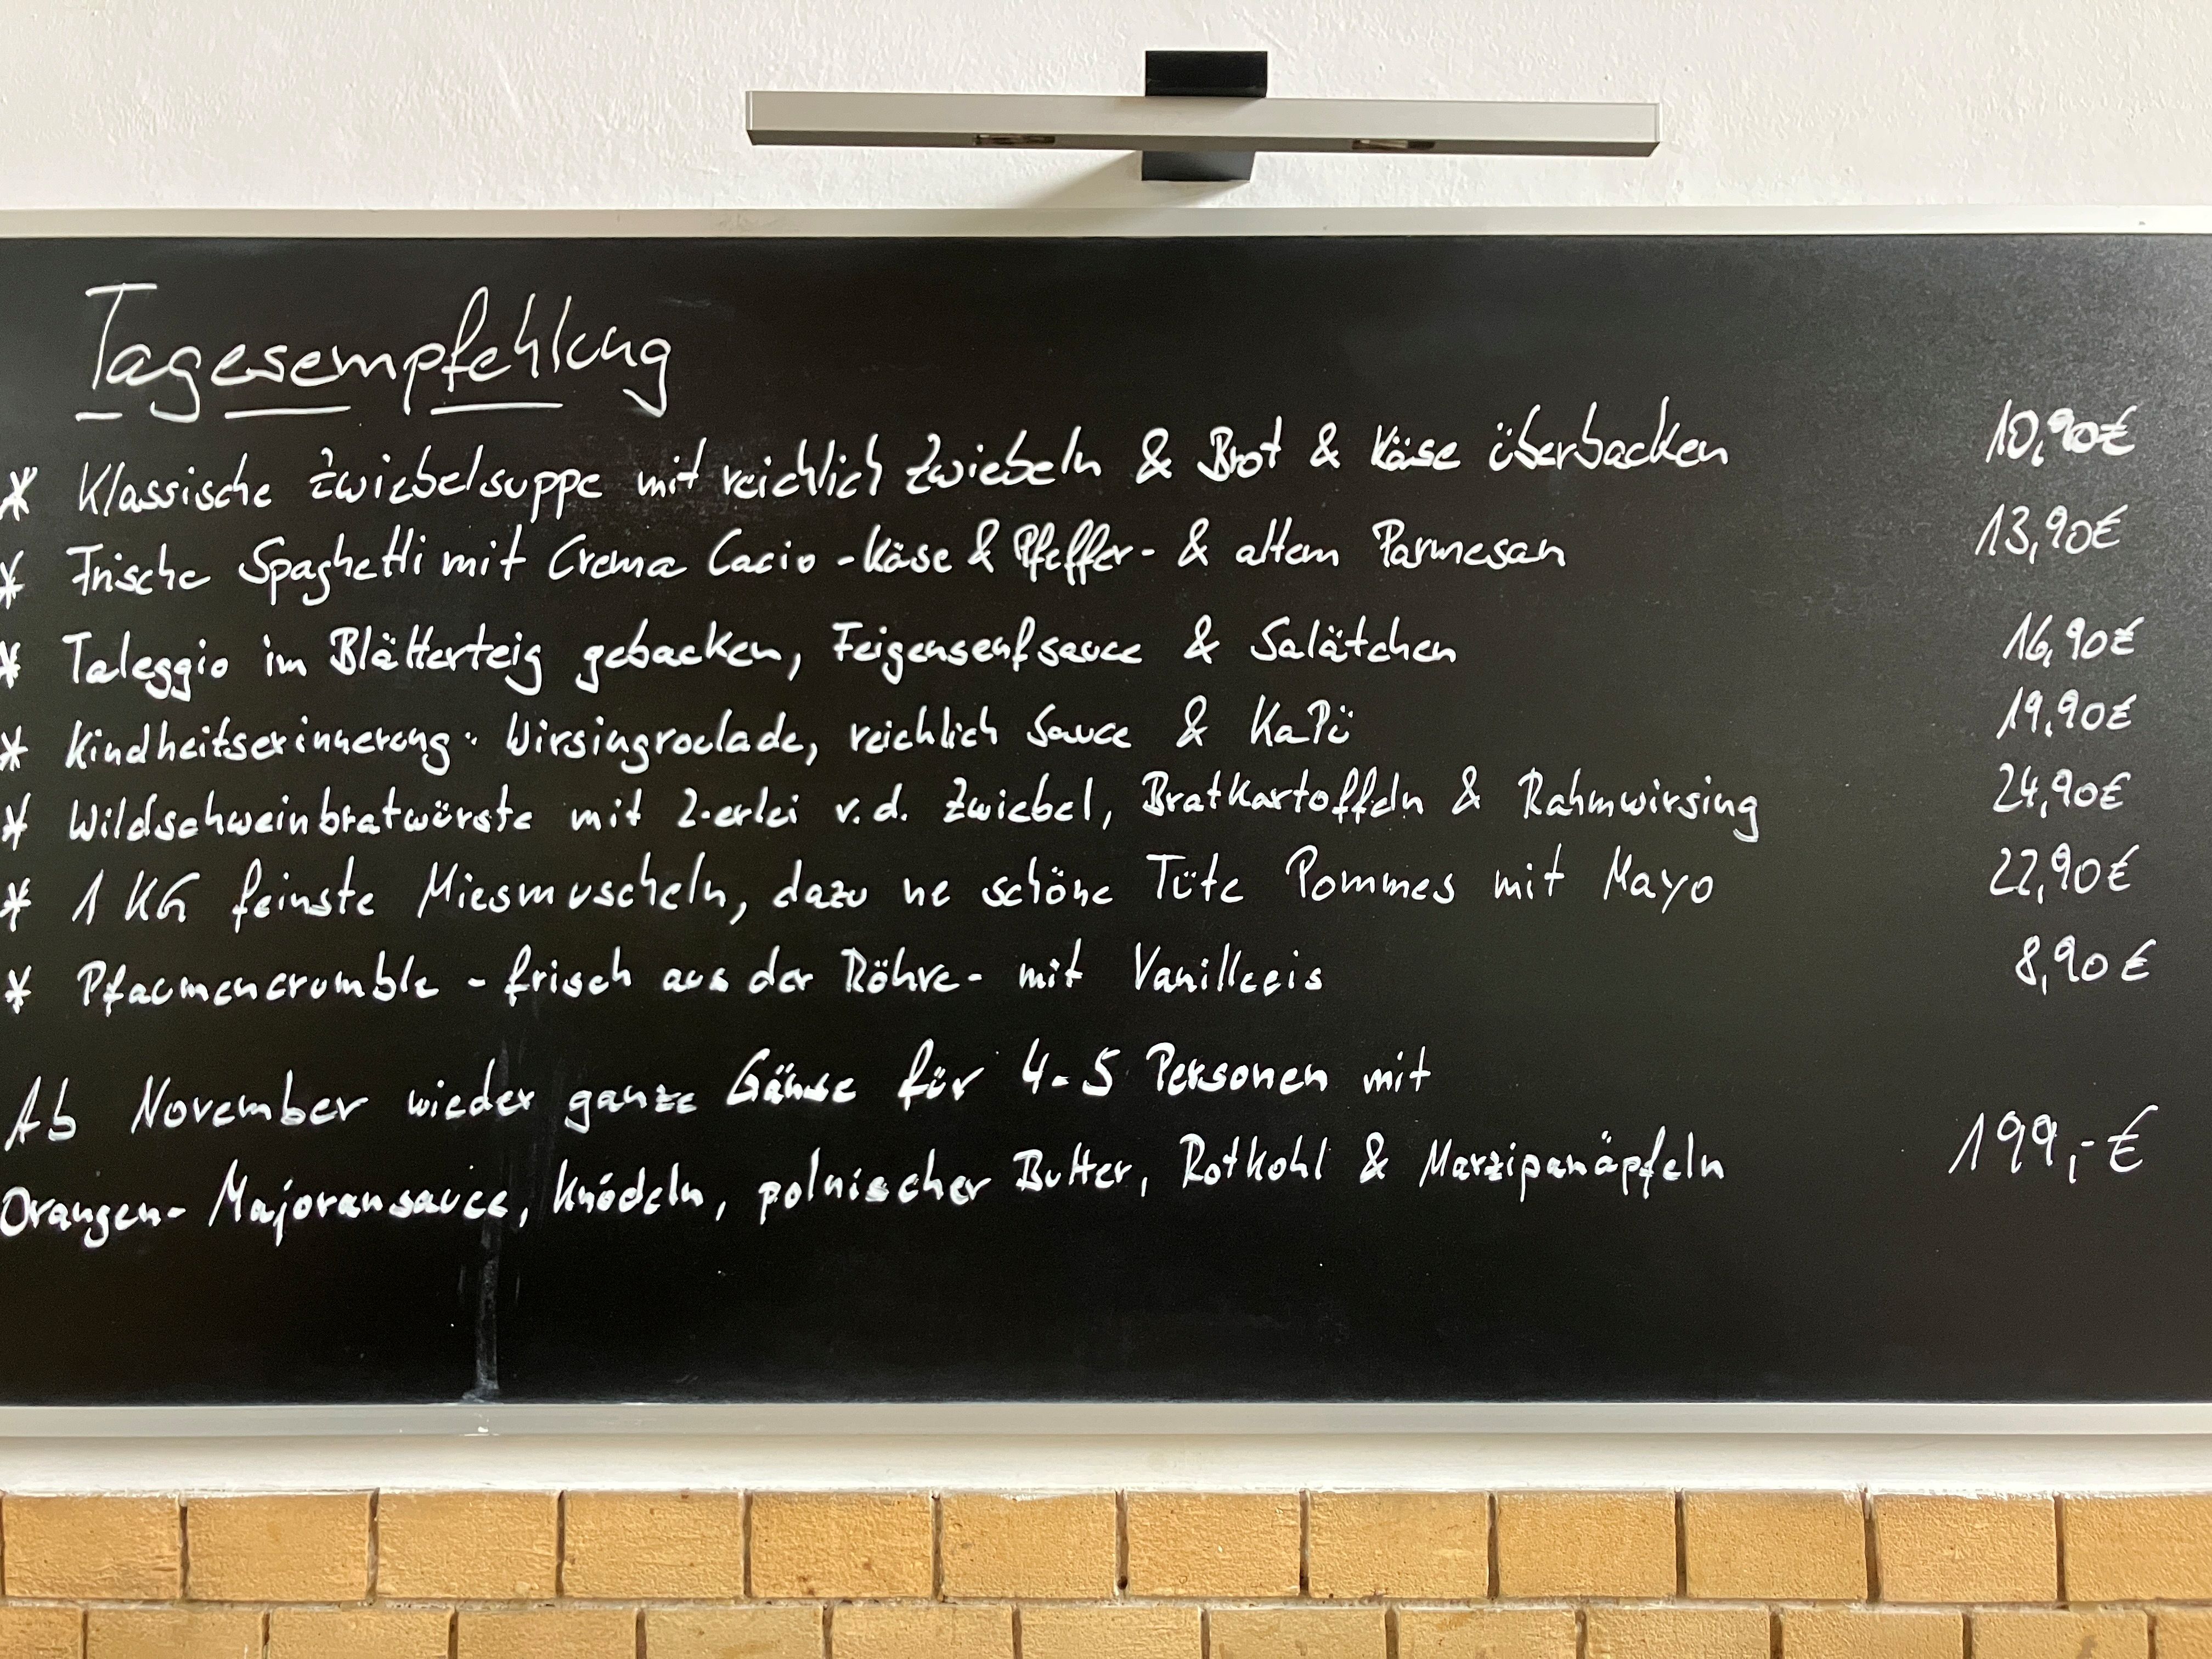 Tagesempfehlung
* Klassische Zwiebelsuppe mit reichlich Zwiebeln & Brot & Käse überbacken 10,90€
* Frische Spaghetti mit Crema Cacio -Käse & Pfeffer- & altem Parmesan 13,90€
* Taleggio im Blätterteig gebacken, Feigensenfsauce & Salätchen 16,90€
* Kindheitserinnerung: Wirsingroulade, reichlich Sauce & KaPü 19,90€
* Wildschweinbratwürste mit 2-erlei v.d. Zwiebel, Bratkartoffeln & Rahmwirsing 24,90€
* 1 KG feinste Miesmuscheln, dazu ne schöne Tüte Pommes mit Mayo 22,90€
* Pflaumencrumble - frisch aus der Röhre - mit Vanilleeis 8,90€
Ab November wieder ganze Gänse für 4-5 Personen mit
Orangen-Majoransauce, Knödeln, polnischer Butter, Rotkohl & Marzipanäpfeln 199,-€